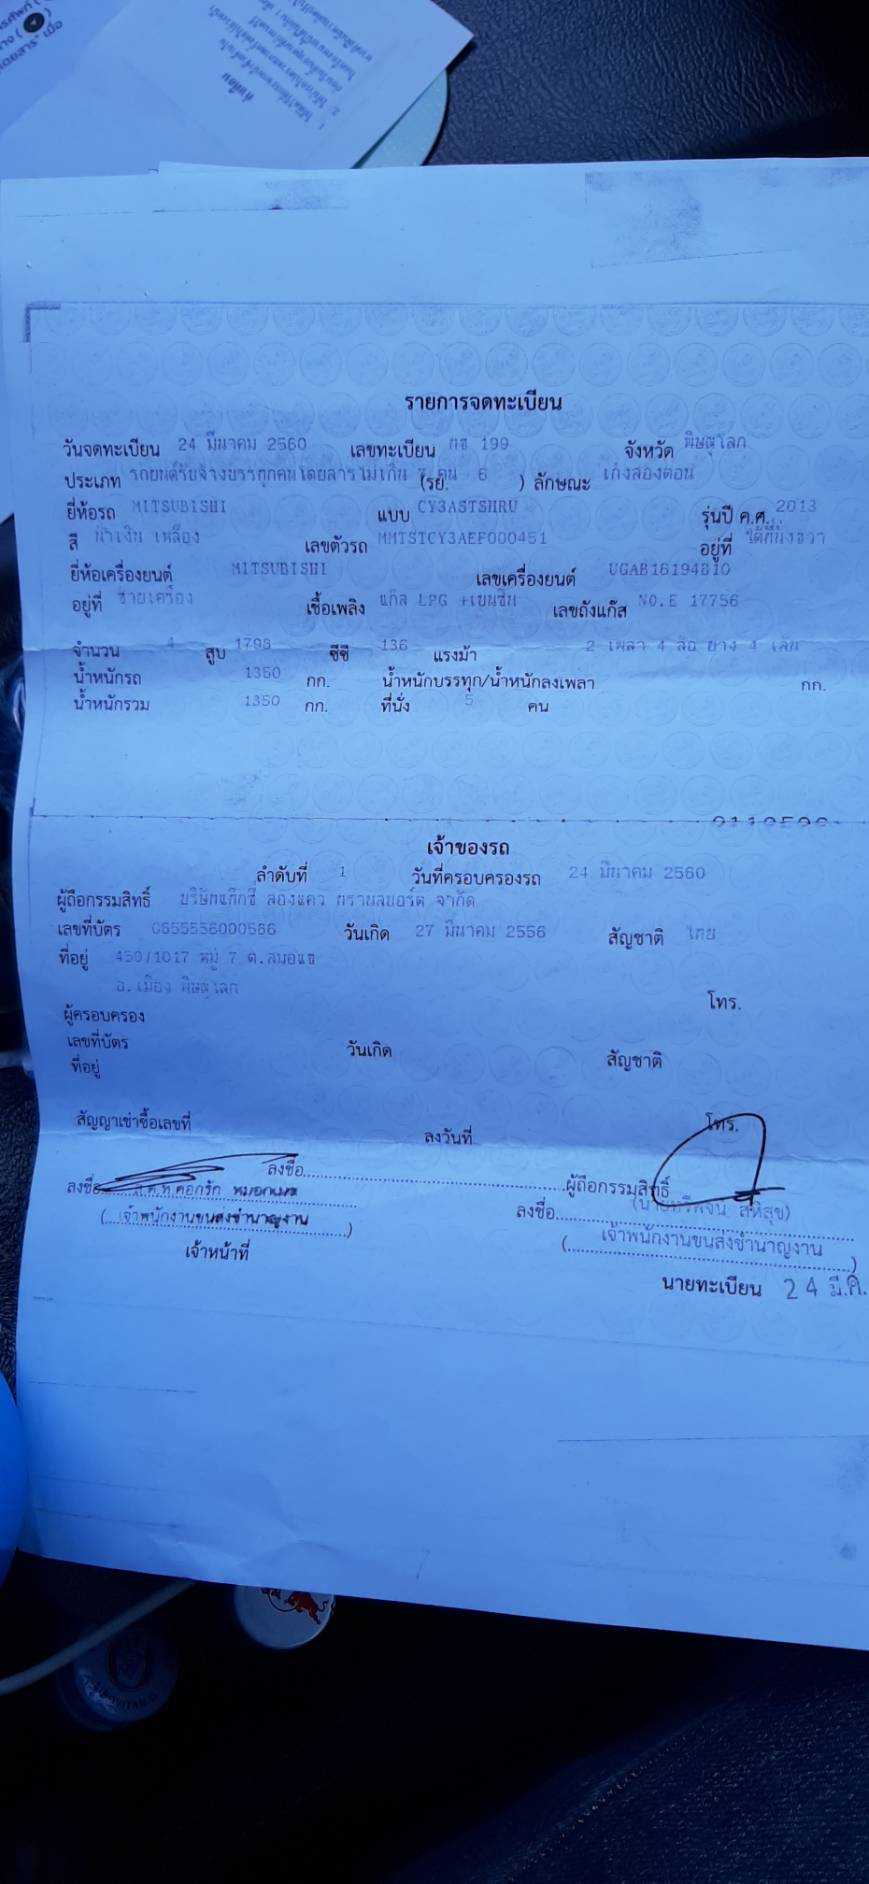 รายการจดทะเบียน
วันจดทะเบียน 24 มีนาคม 2560 เลขทะเบียน 199 จังหวัด พิษณุโลก
ประเภท รถยนต์รับจ้างบรรทุกคนโดยสารไม่เกิน 7 คน (รย. 6 ) ลักษณะ เก๋งสองตอน
ยี่ห้อรถ MITSUBISHI แบบ CY3ASTSHRU รุ่นปี ค.ศ. 2013
สี น้ำเงิน เหลือง เลขตัวรถ MMTSTCY3AEF000451 อยู่ที่ ใต้ที่นั่งขวา
ยี่ห้อเครื่องยนต์ MITSUBISHI เลขเครื่องยนต์ UGAB16194810
อยู่ที่ ซ้ายเครื่อง เชื้อเพลิง แก๊ส LPG +เบนซิน เลขถังแก๊ส NO.E 17756
จำนวน 4 สูบ 1798 ซีซี 136 แรงม้า 2 เพลา 4 ล้อ ยาง 4 เส้น
น้ำหนักรถ 1350 กก. น้ำหนักบรรทุก/น้ำหนักลงเพลา กก.
น้ำหนักรวม 1350 กก. ที่นั่ง 5 คน
เจ้าของรถ
ลำดับที่ 1 วันที่ครอบครองรถ 24 มีนาคม 2560
ผู้ถือกรรมสิทธิ์ บริษัทแท็กซี่ สองแคว ทรานสปอร์ต จำกัด
เลขที่บัตร 0655556000566 วันเกิด 27 มีนาคม 2556 สัญชาติ ไทย
ที่อยู่ 450/1017 หมู่ 7 ต.สมอแข
อ.เมือง พิษณุโลก
โทร.
ผู้ครอบครอง
เลขที่บัตร วันเกิด สัญชาติ
ที่อยู่
โทร.
สัญญาเช่าซื้อเลขที่ ลงวันที่
ลงชื่อ ผู้ถือกรรมสิทธิ์
ลงชื่อ ลงชื่อ สหิสุข)
(เจ้าพนักงานขนส่งชำนาญงาน) (เจ้าพนักงานขนส่งชำนาญงาน)
เจ้าหน้าที่
นายทะเบียน 24 มี.ค.